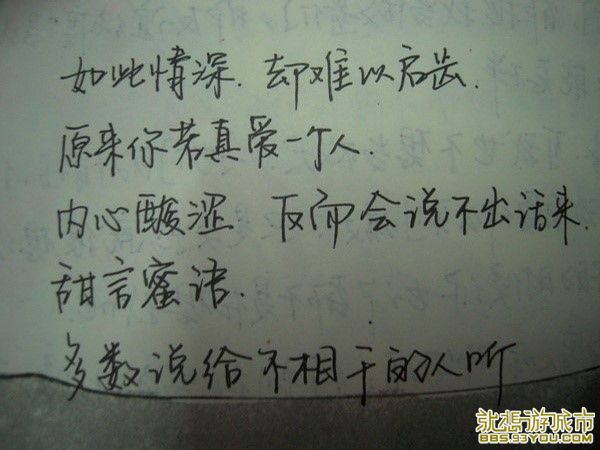 如此情深. 却难以启齿.
原来你若真爱一个人.
内心酸涩 反而会说不出话来.
甜言蜜语.
多数说给不相干的人听
就想游城市
BBS.93YOU.COM